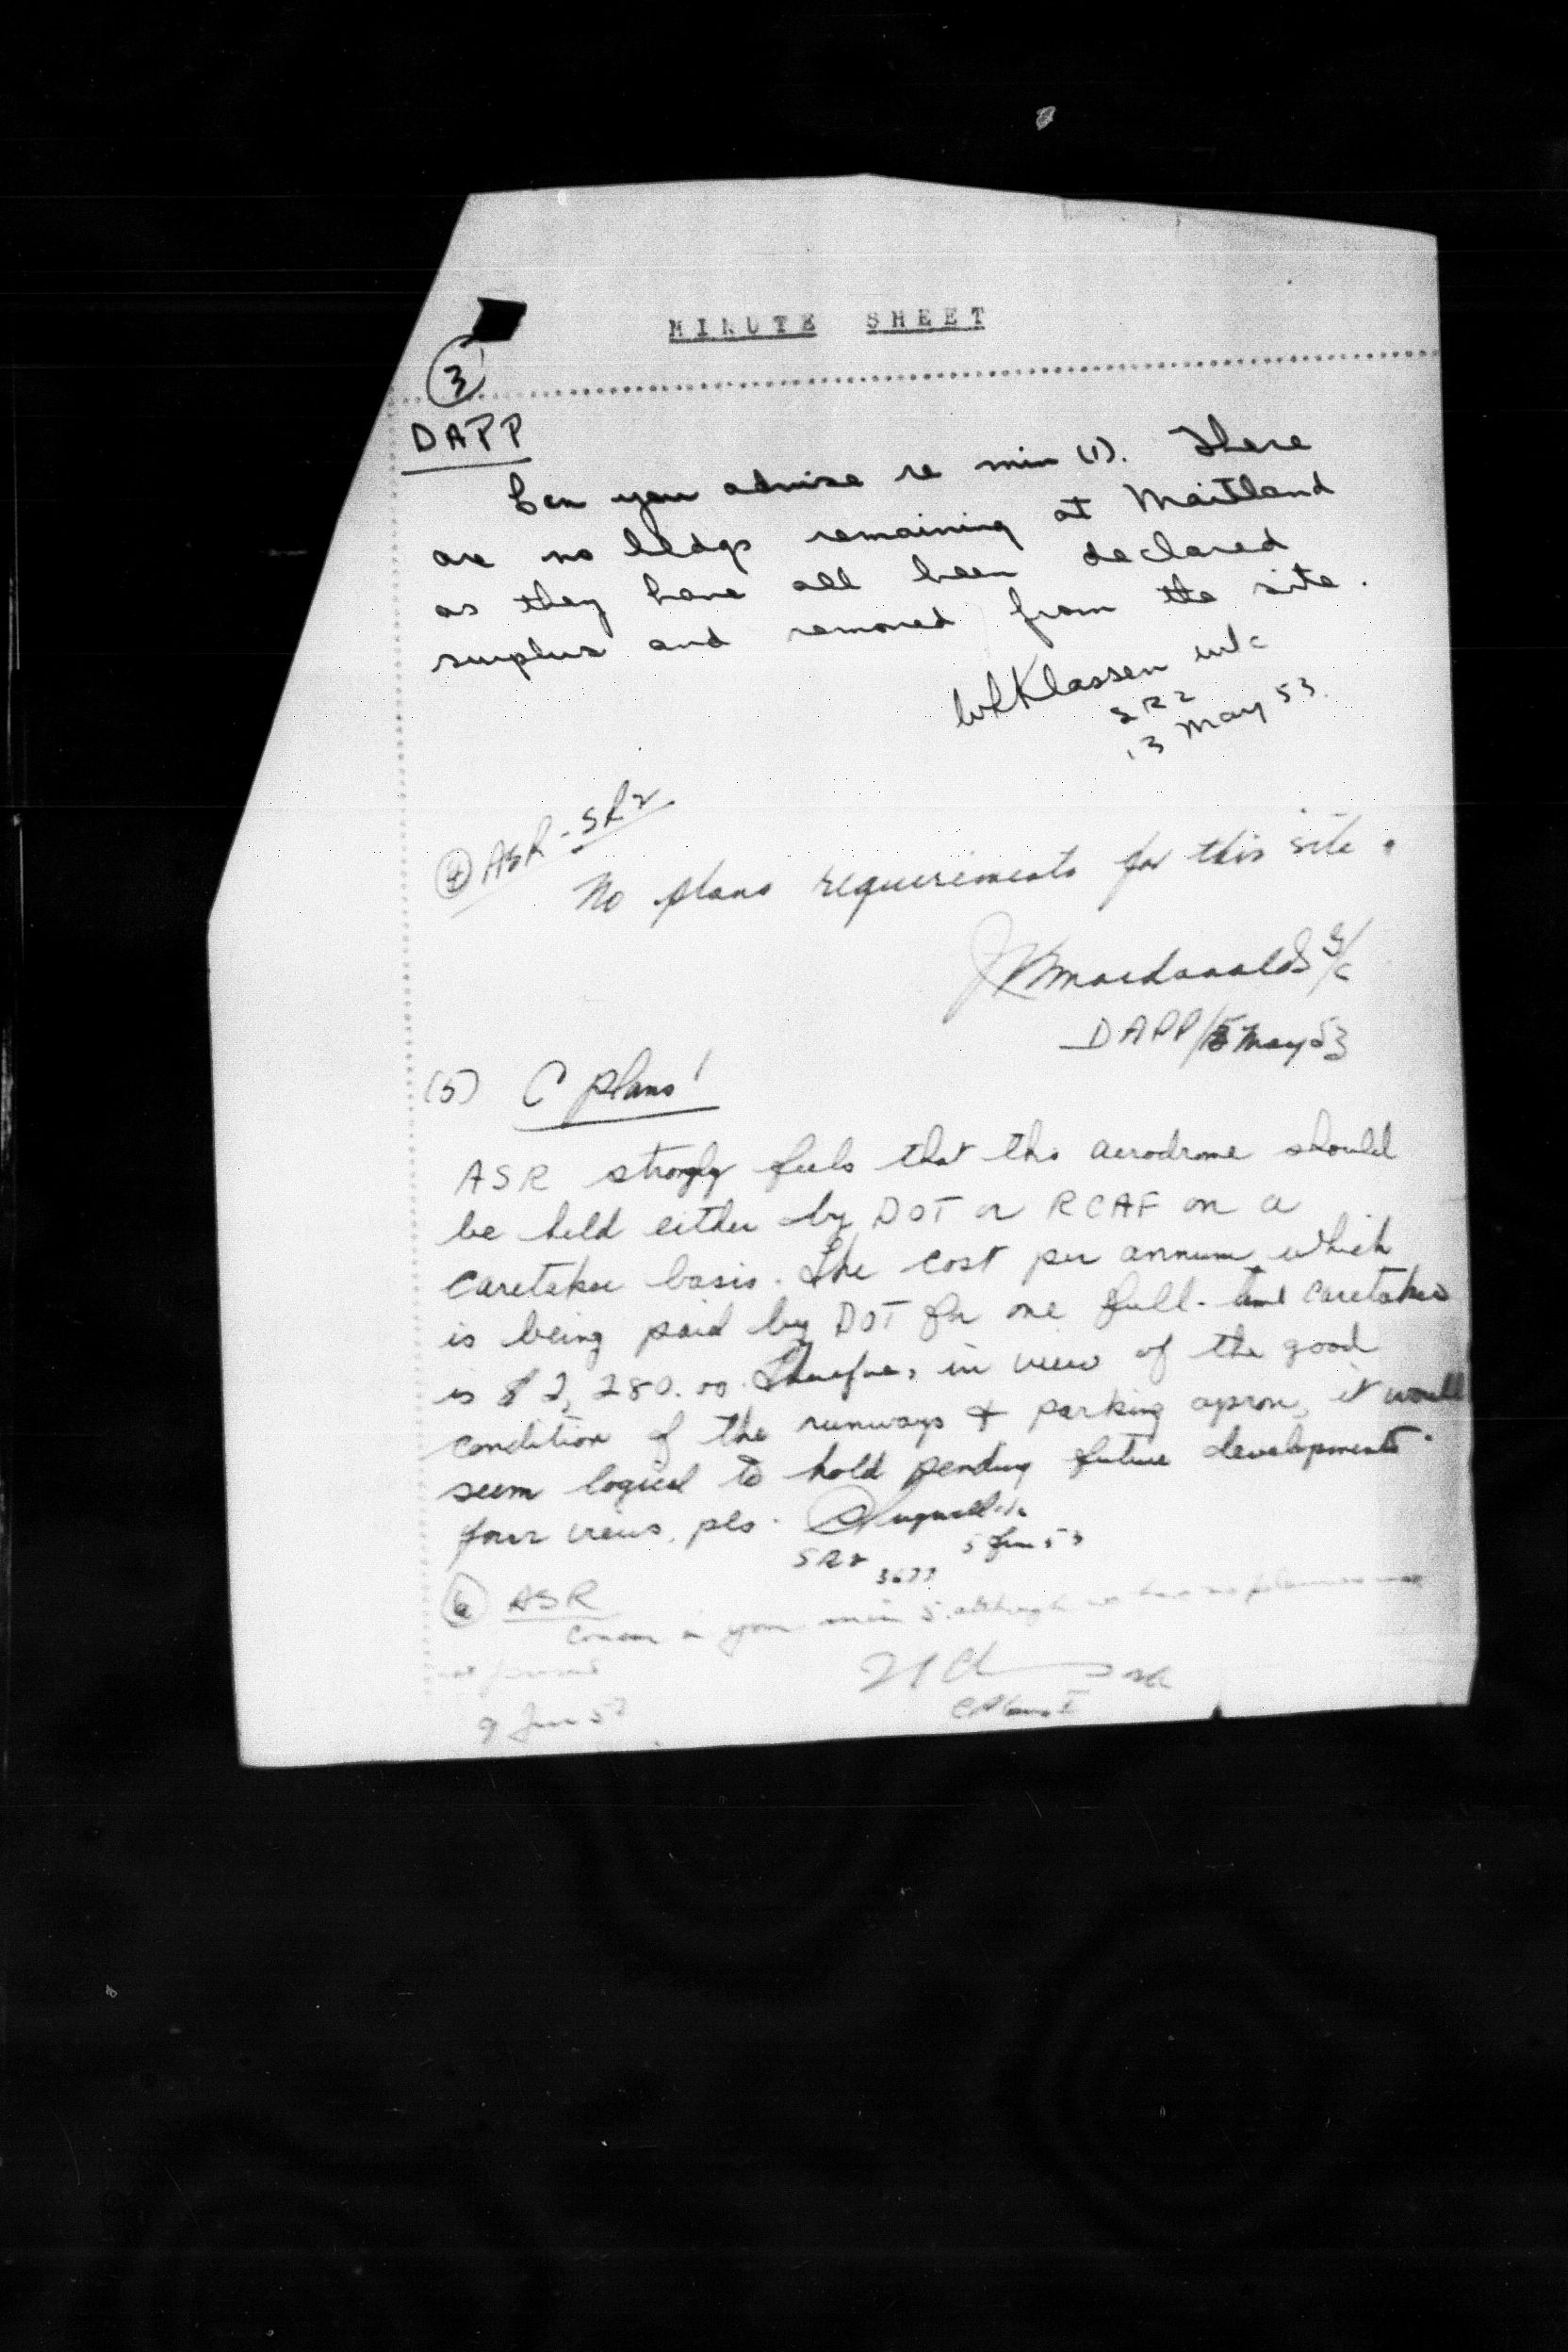 MINUTE SHEET
3
DAPP
Can you advise re min (1). There
are no bldgs remaining at Maitland
as they have all been declared
surplus and removed from the site.
WKlassen w/c
SR2
13 May 53.
4 ASR - SR2
No plans requirements for this site.
Macdonald G/C
DAPP/15 May 53
(5) C Plans 1
ASR strongly feels that this aerodrome should
be held either by DOT or RCAF on a
caretaker basis. The cost per annum which
is being paid by DOT for one full-time caretaker
is $2,280.00. Therefore, in view of the good
condition of the runways & parking apron, it would
seem logical to hold pending future developments.
Your views, pls.
SR2 3677 5 Jun 53
6 ASR
Concur in your min 5. although we have no
at present
9 Jun 53
C Plans I